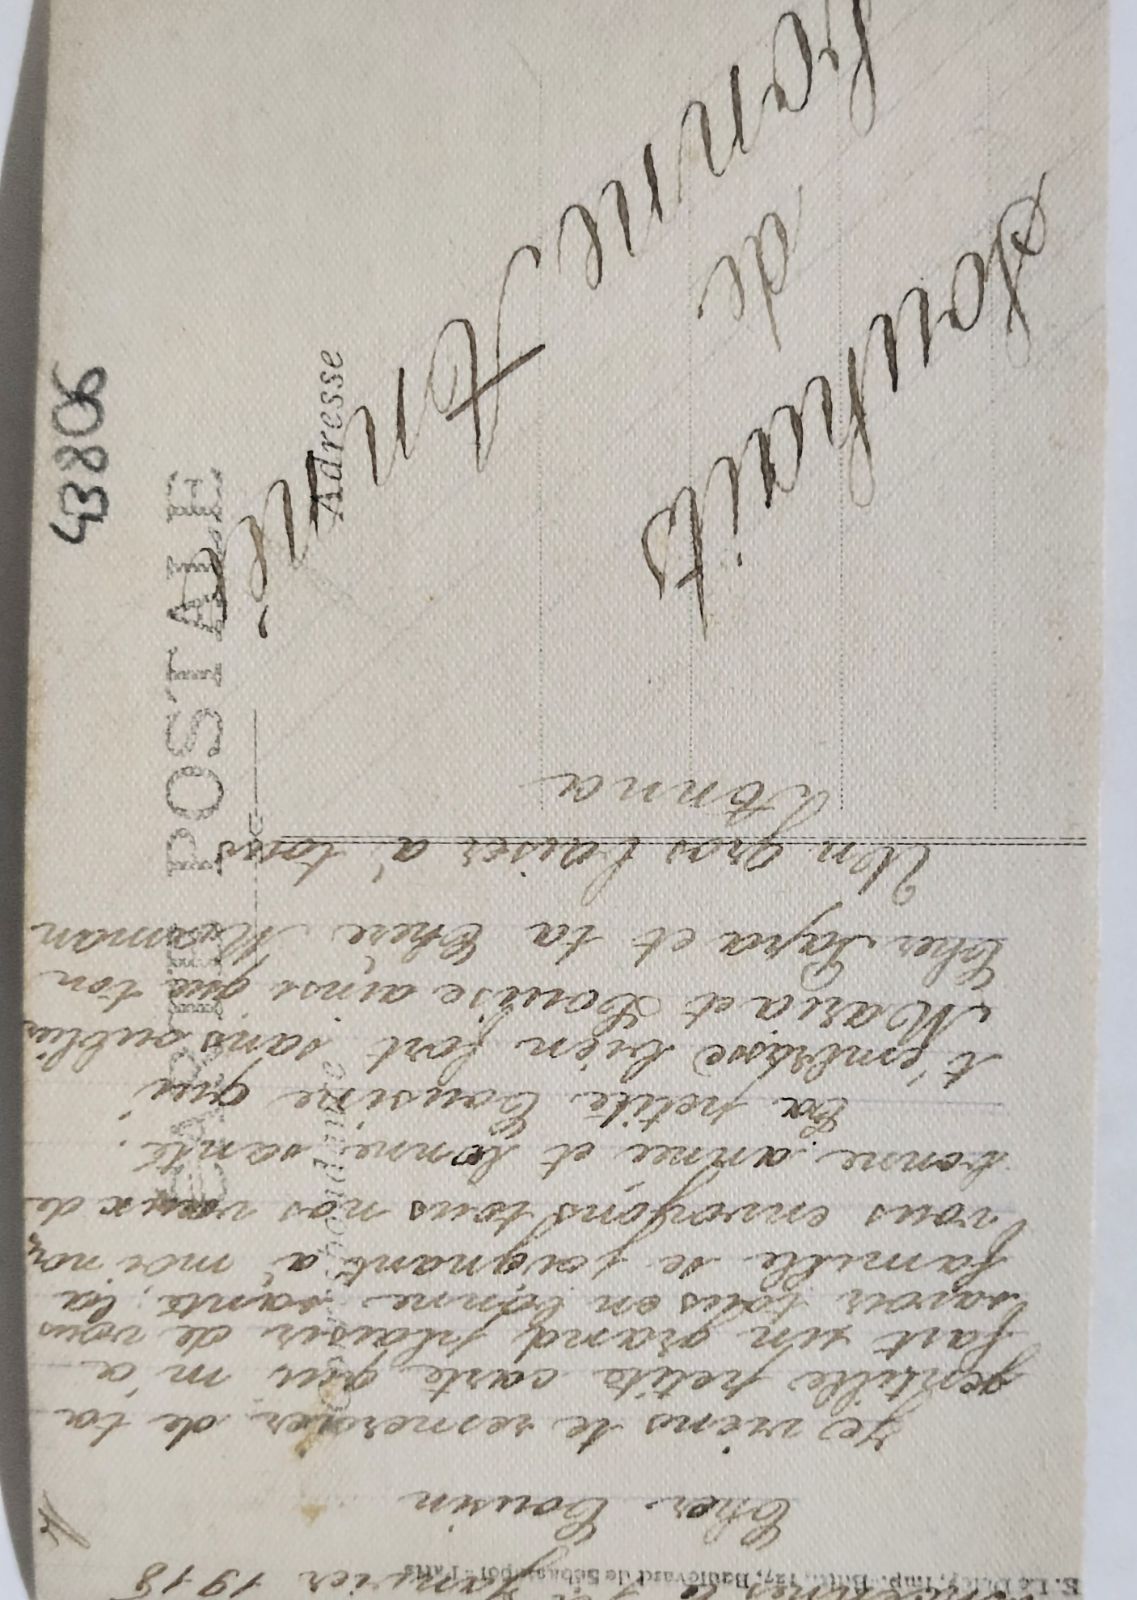 43806
CARTE POSTALE
Correspondance
Adresse
E. Le Deley, Imp.-Édit., 127, Boulevard de Sébastopol - Paris
le Janvier 1918
Cher Cousin
Je viens te remercier de ta
gentille petite carte qui m'a
fait un grand plaisir de vous
savoir tous en bonne santé, la
famille se joignant à moi nous
vous envoyons tous nos vœux de
bonne année et bonne santé.
Ta petite Cousine qui
t'embrasse bien fort sans oublier
Maria et Louise ainsi que ton
Cher Papa et ta Chère Maman
Un gros baiser à tous
Anna
Souhaits
de
bonne
Année